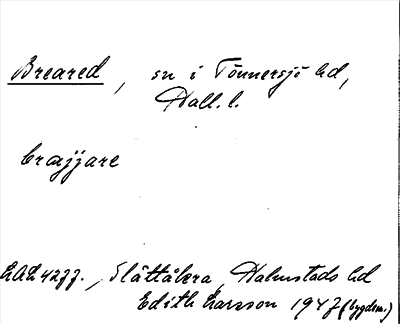 Breared, sn i Tönnersjö hd,
Hall. l.
brajjare
Slättåkra, Halmstads hd
Edith Larsson 1947 (bygdem.)